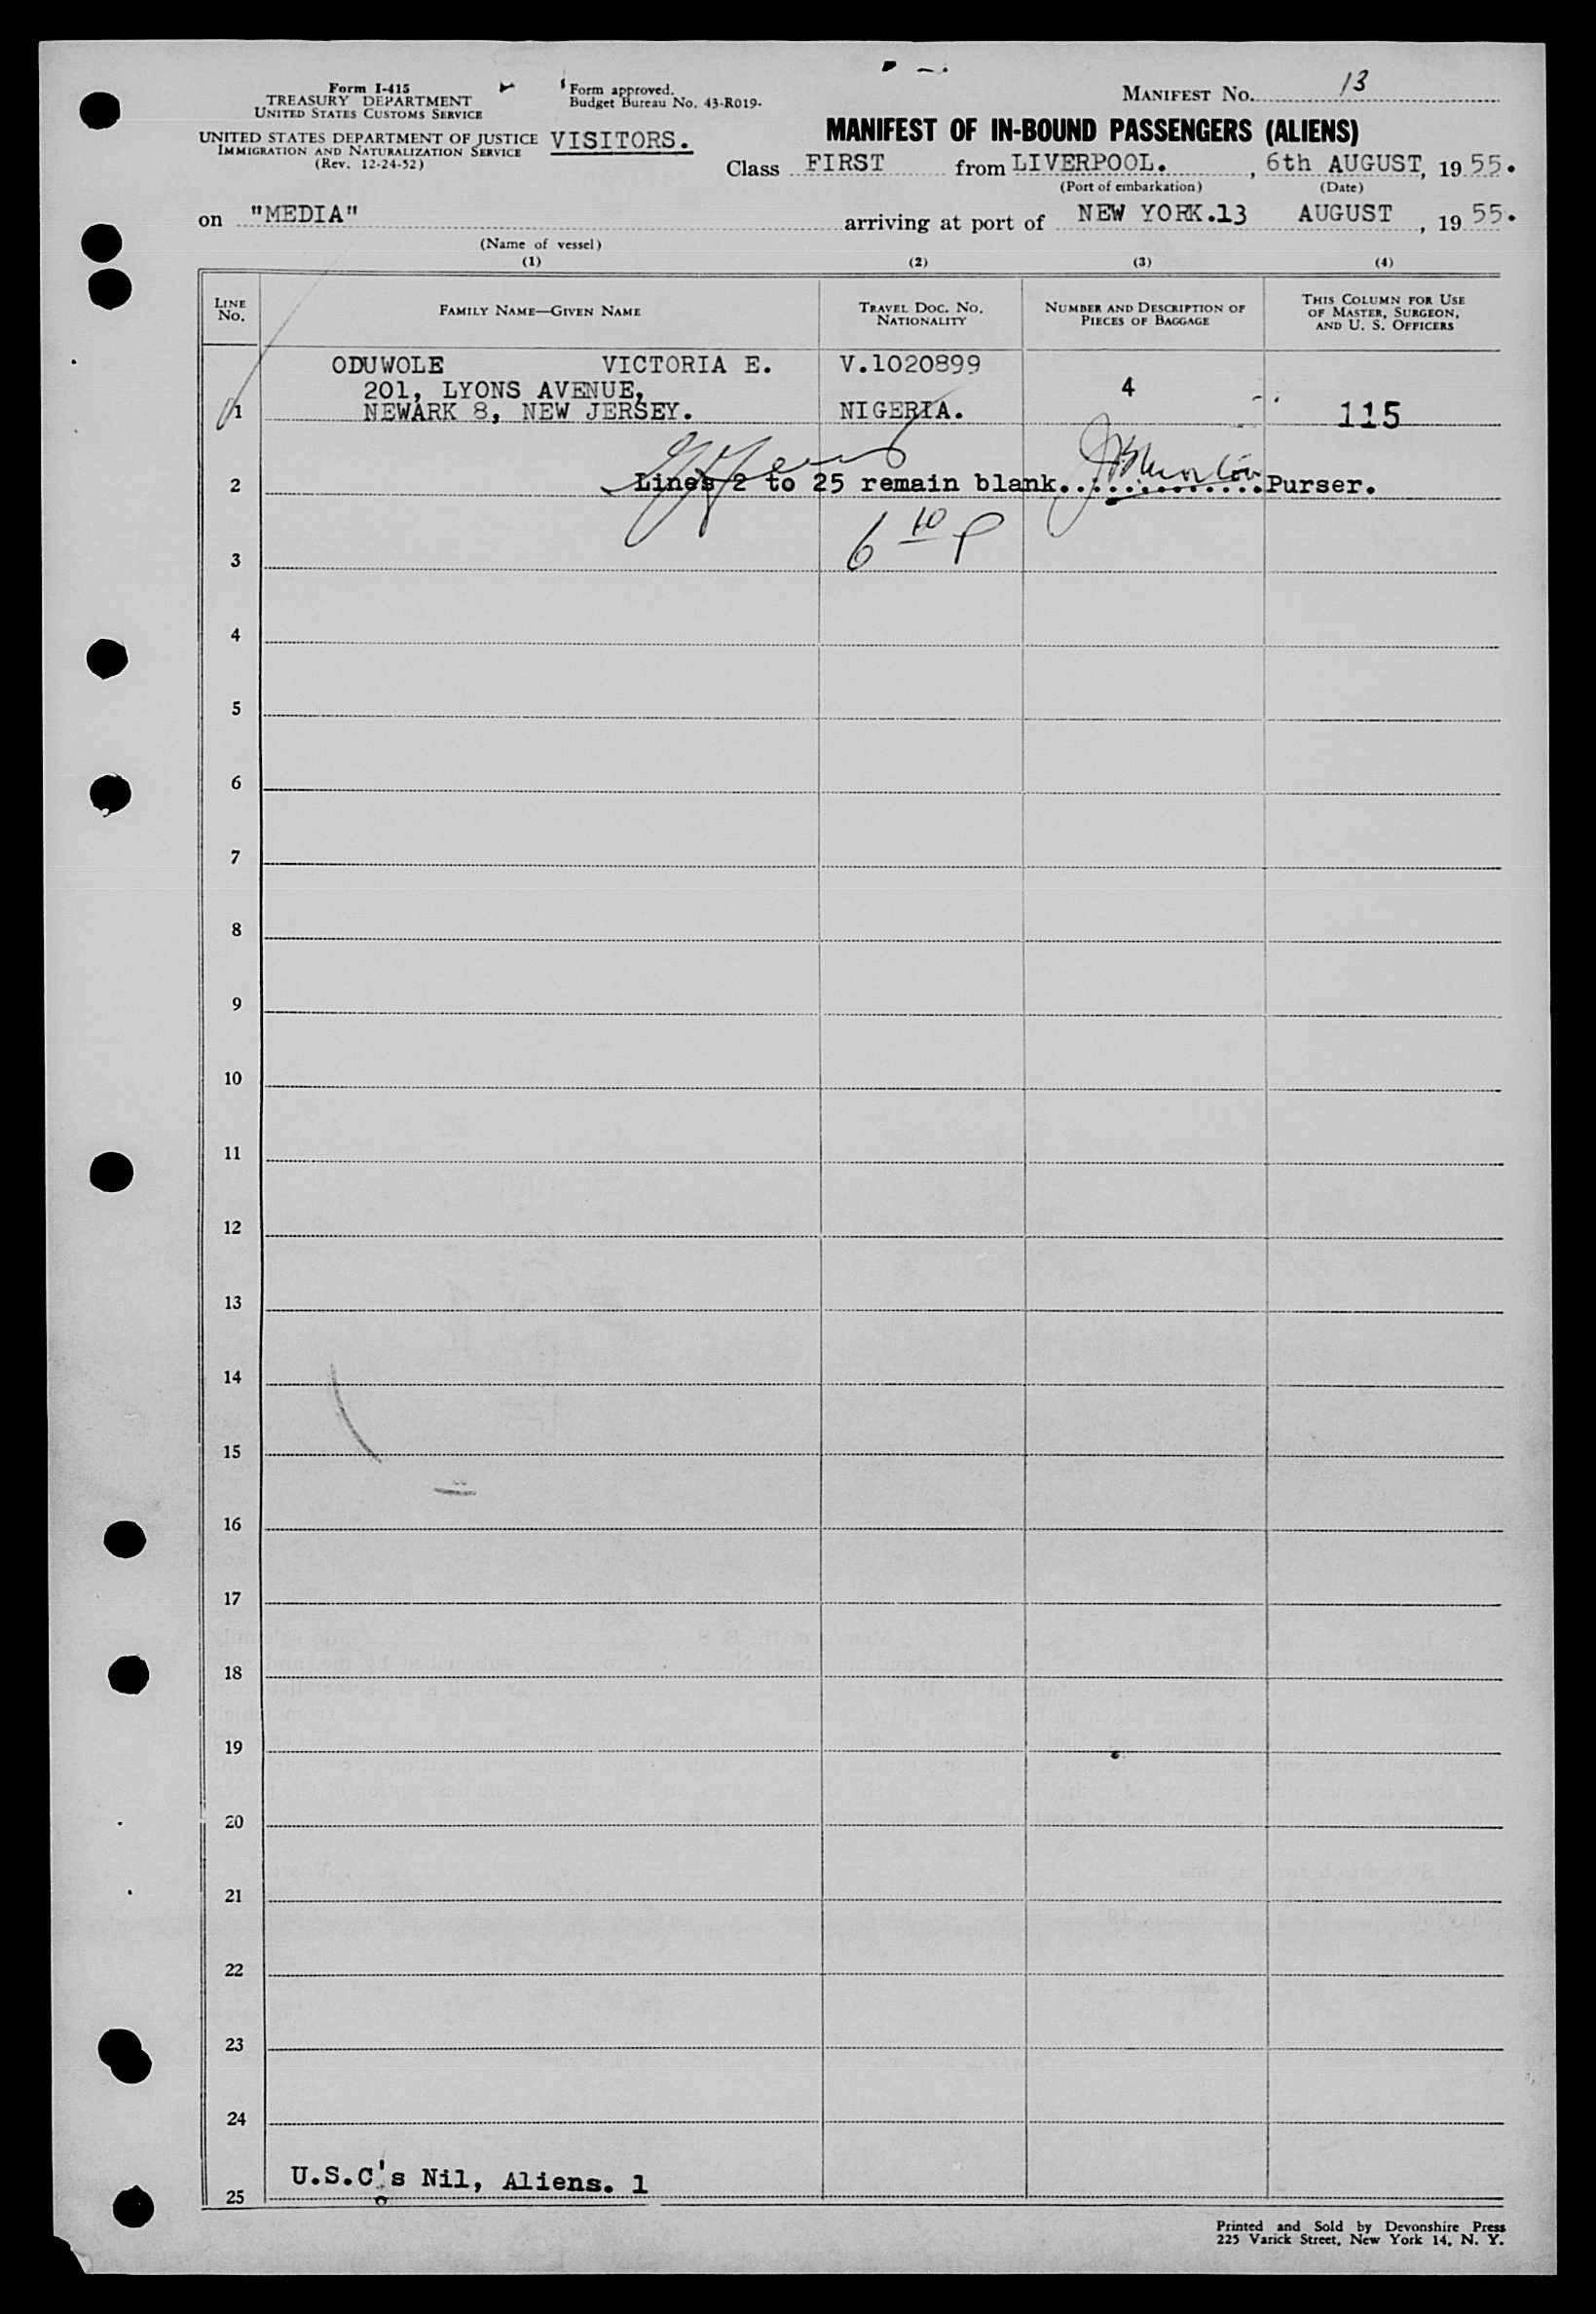 Form I-415
TREASURY DEPARTMENT
UNITED STATES CUSTOMS SERVICE
UNITED STATES DEPARTMENT OF JUSTICE
IMMIGRATION AND NATURALIZATION SERVICE
(Rev. 12-24-52)
Form approved.
Budget Bureau No. 43-R019.
VISITORS.
MANIFEST No. 13
MANIFEST OF IN-BOUND PASSENGERS (ALIENS)
Class FIRST from LIVERPOOL. , 6th AUGUST, 1955.
(Port of embarkation) (Date)
on "MEDIA" arriving at port of NEW YORK.13 AUGUST , 1955.
(Name of vessel)
(1) (2) (3) (4)
LINE No. FAMILY NAME—GIVEN NAME TRAVEL DOC. NO. NATIONALITY NUMBER AND DESCRIPTION OF PIECES OF BAGGAGE THIS COLUMN FOR USE OF MASTER, SURGEON, AND U. S. OFFICERS
ODUWOLE VICTORIA E. V.1020899
201, LYONS AVENUE, 4
1 NEWARK 8, NEW JERSEY. NIGERIA. 115
2 Lines 2 to 25 remain blank.............Purser.
3 6 10 P
4
5
6
7
8
9
10
11
12
13
14
15
16
17
18
19
20
21
22
23
24
25 U.S.C's Nil, Aliens. 1
Printed and Sold by Devonshire Press
225 Varick Street, New York 14, N. Y.